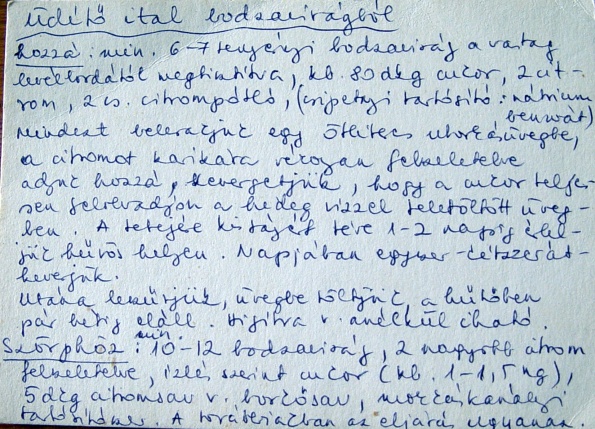 Üdítő ital bodzavirágból
hozzá: min. 6-7 tenyérnyi bodzavirág a vastag
levélbordától megtisztítva, kb. 80 dkg cukor, 2 cit-
rom, 2 cs. citrompótló, (csipetnyi tartósító: nátrium
benzoát)
mindezt belerakjuk egy ötliteres uborkásüvegbe,
a citromot karikára vékonyan felszeletelve
adjuk hozzá, kevergetjük, hogy a cukor telje-
sen felolvadjon a hideg vízzel teletöltött üveg-
ben. A tetejére kistányért téve 1-2 napig érlel-
jük hűvös helyen. Napjában egyszer-kétszer át-
keverjük.
Utána leszűrjük, üvegbe töltjük, a hűtőben
pár hétig eláll. Higítva v. anélkül iható.
Szörphöz: min. 10-12 bodzavirág, 2 nagyobb citrom
felszeletelve, ízlés szerint cukor (kb. 1-1,5 kg),
5 dkg citromsav v. borkősav, mokkáskanálnyi
tartósítószer. A továbbiakban az eljárás ugyanaz.